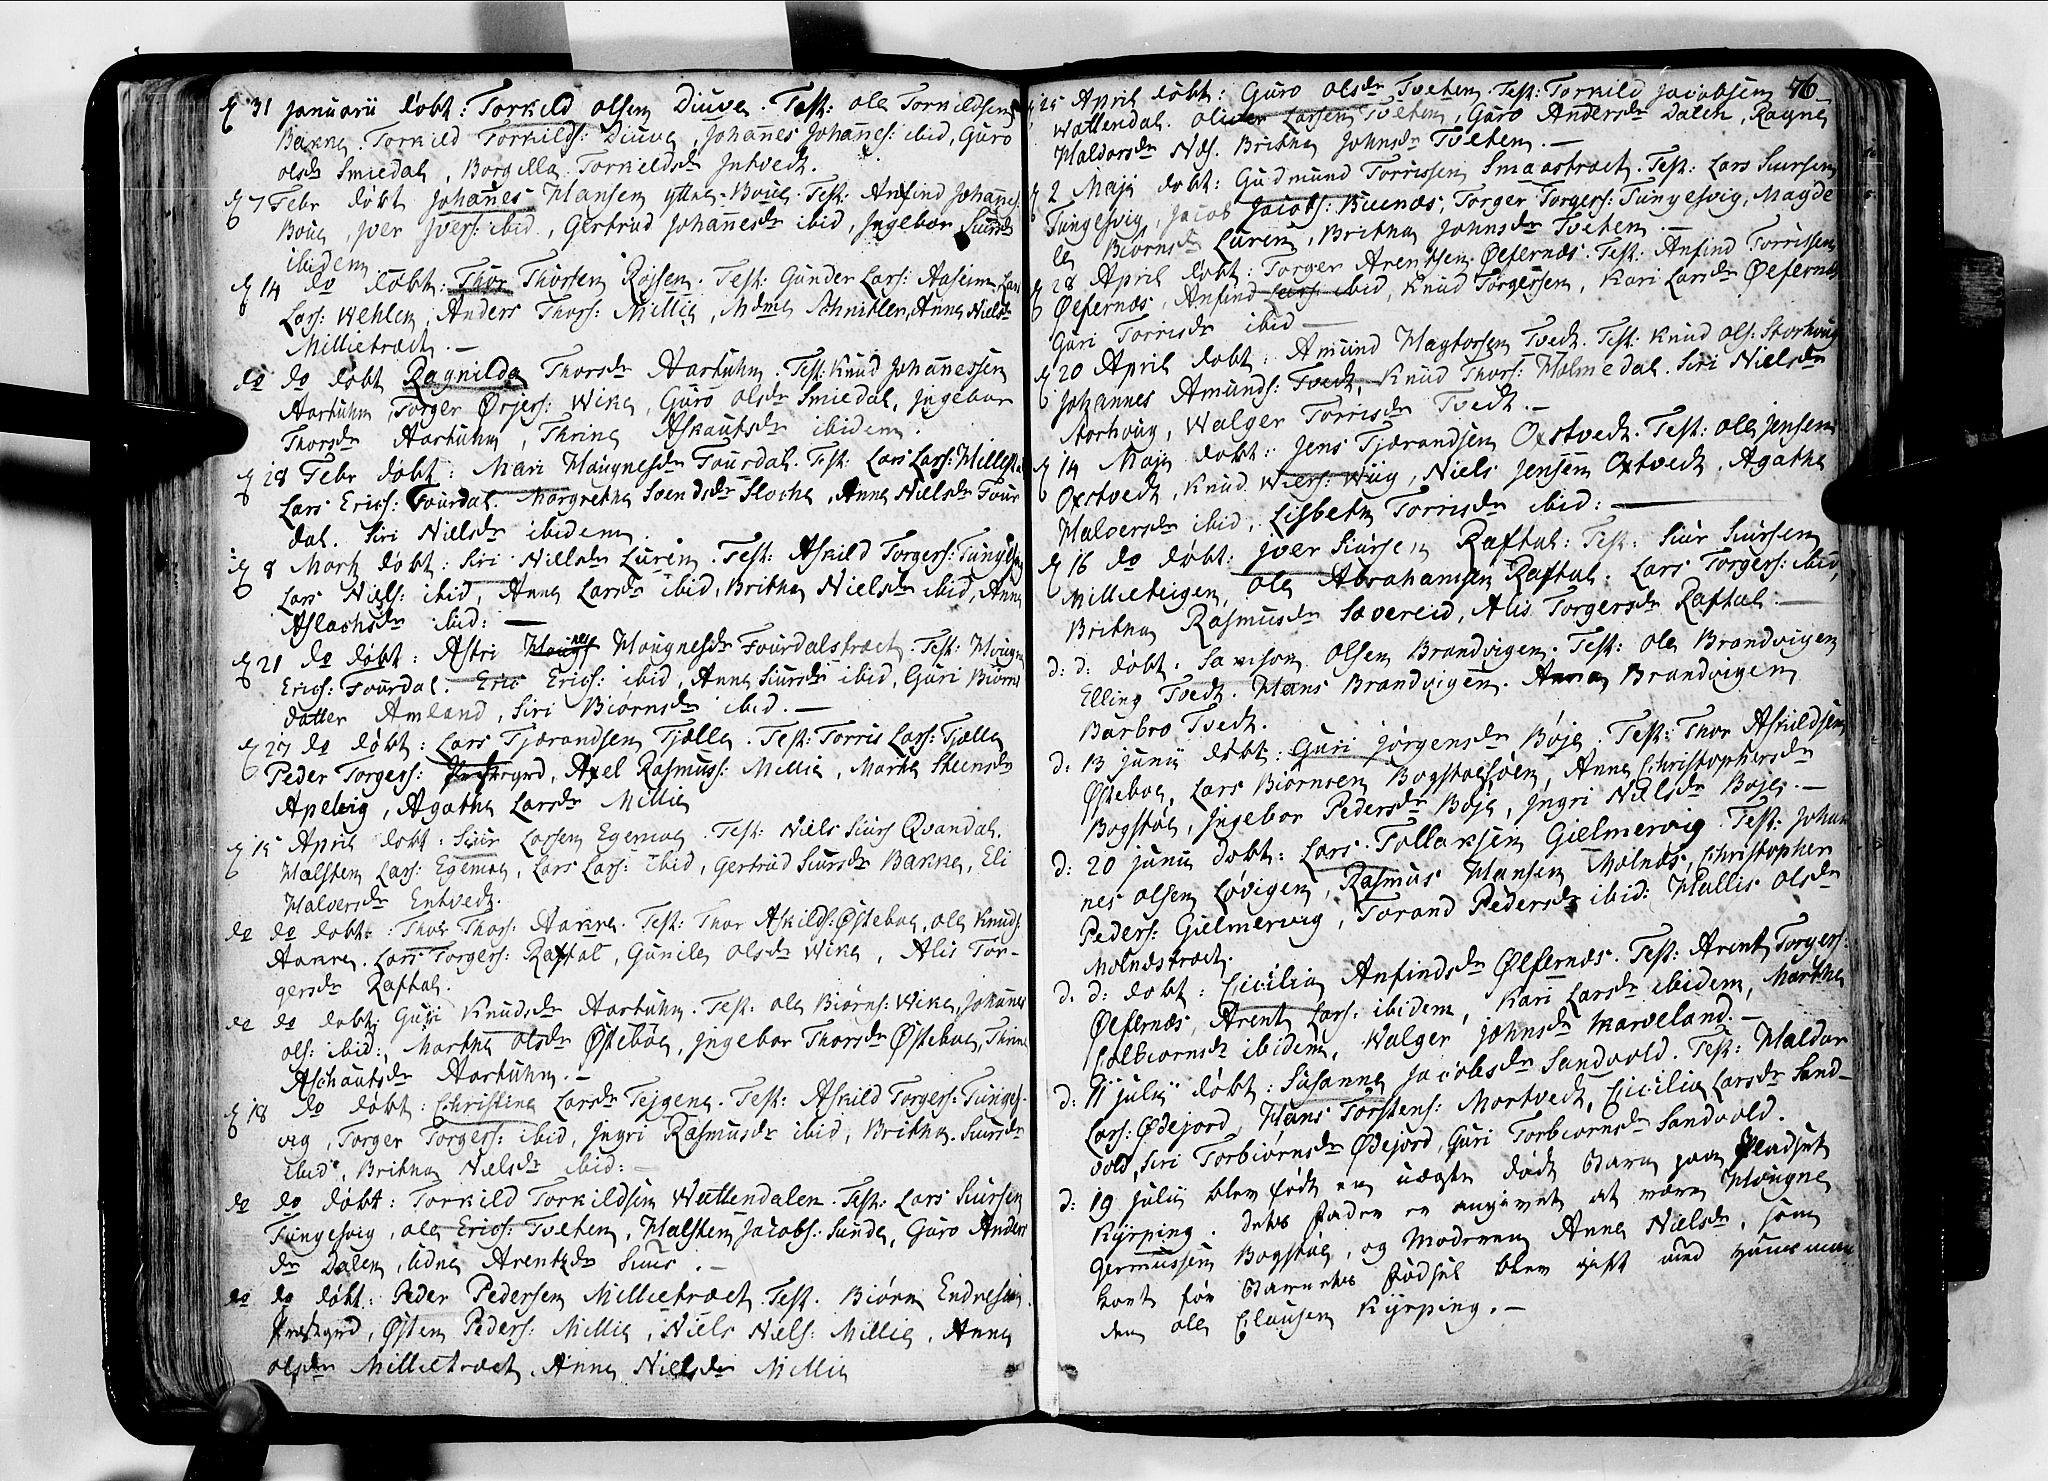 d 31 Januarii døbt: Torkild olsen Diuve. Test: ole Torkildsen
Bakne. Torkild Torkilds: Diuve, Johannes Johañes: ibid, Guro
olsdr Smiedal, Borgilla Torkeldsdr Jntvedt.
d 7 Febr døbt Johañes Hansen yttre-Boue. Test: Anfind Johanes:
Boue, Jver Jvers: ibid, Gertrud Johañesdr ibid, Jngebor Siursdr
ibidem
d 14 do døbt: Thor Thorsen Røjsen. Test: Gunder Lars: Aaseim
Lars: Wehlen, Anders Thors: Millie, Mdme Schnitler, Anna Nielsdr
Millietræet.
do do døbt Ragnilda Thorsdr Aartuhn. Test: Knud Johanessen
Aartuhn, Torger Ørjers: Wika, Guro olsdr Smiedal, Jngebor
Thorsdr Aartuhn, Thrina Askautsdr ibidem.
d 28 Febr døbt: Mari Haugnesdr Fourdal. Test: Lars Lars:
Lars Erics: Fourdal. Margretha Svendsdr Slocha, Anna Nielsdr Four
dal. Siri Nielsdr ibidem.
d 8 Marti døbt: Siri Nielsdr Luren. Test: Askild Torgers:
Lars Niels: ibid, Anna Larsdr ibid, Britha Nielsdr ibid, Anna
Aslachsdr ibid:
d 21 do døbt: Astri Mougnesdr Fourdalstræet. Test: Mougn
Erics: Fourdal. Eric Erics: ibid, Anna Siursdr ibid, Guri Biørns
datter Amland, Siri Biørnsdr ibid.
d 27 do døbt: Lars Tjærandsen Tjælla. Test: Torris Lars: Tjælla
Peder Torgers: Præstegrd, Axel Rasmuss: Millie, Marta Steensdr
Apelvig, Agatha Larsdr Millie
d 15 April døbt: Siur Larsen Egemoe. Test: Niels Siurs Qvandal.
Halsten Lars: Egemoe, Lars Lars: ibid, Gertrud Siursdr Bakke, Eli
Halversdr Entvedt.
do do døbt: Thor Thors: Aakra. Test: Thor Askilds: Østeboe, ole Knuds:
Aakra. Lars Torgers: Raftal, Gunila olsdr Wika, Alis Tor-
gersdr Raftal.
do do døbt: Guri Knudsdr Aartuhn. Test: ole Biørns: Wika, Johañes
ols: ibid:, Martha olsdr Østeboe, Jngebor Thorsdr Østeboe, Thrina
Aschautsdr Aartuhn.
d 18 do døbt: Christina Larsdr Tejgena. Test: Askild Torgers: Tunges-
vig, Torger Torgers: ibid, Jngri Rasmusdr ibid, Britha Siursdr
ibid, Britha Nielsdr ibid:
do do døbt: Torkild Torkildsen Wattendalen. Test: Lars Siursen
Tungesvig, ole Erics: Tveten, Halsten Jacobs: Sunde, Guro Anders
dr Dalen, Udna Arentzdr Siuur.
do do døbt: Peder Pedersen Millietræet. Test. Biørn Endresen
Præstegrd, Østen Peders: Millie, Niels Niels: Millie, Anna
olsdr Millietræet, Anna Nielsdr Millie
76
d 25 April døbt: Guro olsdr Tveten. Test: Torkild Jacobsen
Wattendal. Larsen Tveten, Guro Andersdr Dalen, Ragna
Haldorsdr Næs. Britha Johnsdr Tveten.
d 2 Maji døbt: Gudmund Torrissen Smaastræet. Test: Lars Siursen
Tungesvig, Jacob Jacobs: Buenæs, Torger Torgers: Tungesvig, Magde
le Biørnsdr Luren, Britha Johnsdr Tveten.
d 28 April døbt: Torger Arentsen Ølfernæs. Test: Anfind Torrissen
Ølfernæs, Anfind Lars: ibid, Knud Torgersen, Kari Larsdr Ølfernæs
Guri Torrisdr ibid
d 20 April døbt: Amund Hagtorsen Tvedt. Test: Knud ols: Storhoug
Johannes Amunds: Tvedt, Knud Thors: Holmedal. Siri Nielsdr
Storhoug, Walger Torrisdr Tvedt.
d 14 Maji døbt: Jens Tjærandsen Oxstvedt. Test: ole Jensen
Oxstvedt, Knud Wiers: Wiig, Niels Jensen Oxtvedt, Agatha
Halversdr ibid, Lisbeth Torrisdr ibid:
d 16 do døbt: Jver Siursen Raftal: Test: Siur Siursen
Millieteigen, ole Abrahamsen Raftal. Lars Torgers: ibid,
Britha Rasmusdr Sævereid, Alis Torgersdr Raftal.
d: d: døbt: Samson olsen Brandvigen. Test: ole Brandvigen
Elling Tvedt. Hans Brandvigen. Anna Brandvigen
Barbro Tvedt.
d: 13 Junii døbt: Guri Jørgensdr Bøje. Test: Thor Askildsen
Østeboe, Lars Biørnsen Bogstøe, Anna Christophersdr
Bogstøe, Jngebor Pedersdr Bøje, Jngri Nielsdr Bøje.
d: 20 Junii døbt: Lars Tollaksen Gielmervig. Test: Johan
nes olsen Løvigen, Rasmus Hansen Molnæs, Christopher
Peders: Gielmervig, Torand Pedersdr ibid: Hallis olsdr
Molnæstræet.
d: d: døbt: Cicilia Anfindsdr Ølfernæs. Test: Arent Torgers:
Ølfernæs, Arent Lars: ibidem, Kari Larsdr ibidem, Martha
Colbiørnsdr ibidem, Walger Johnsdr Markeland.
d: 11 Julii døbt: Susanna Jacobsdr Sandvold. Test: Haldor
Lars: Ødejord, Hans Torstens: Mortvedt, Cicilia Larsdr Sand-
vold, Siri Torbiørnsdr Ødejord, Guri Torbiørnsdr Sandvold.
d: 19 Julii blev født en uægte død Barn paa Pladset
Kyrping. dets Fader er angivet at være Mougne
Germunssen Bogstøe, og Moderen Anna Nielsdr, som
kort før Barnets Fødsel blev gift med
den ole Clausen Kyrping.